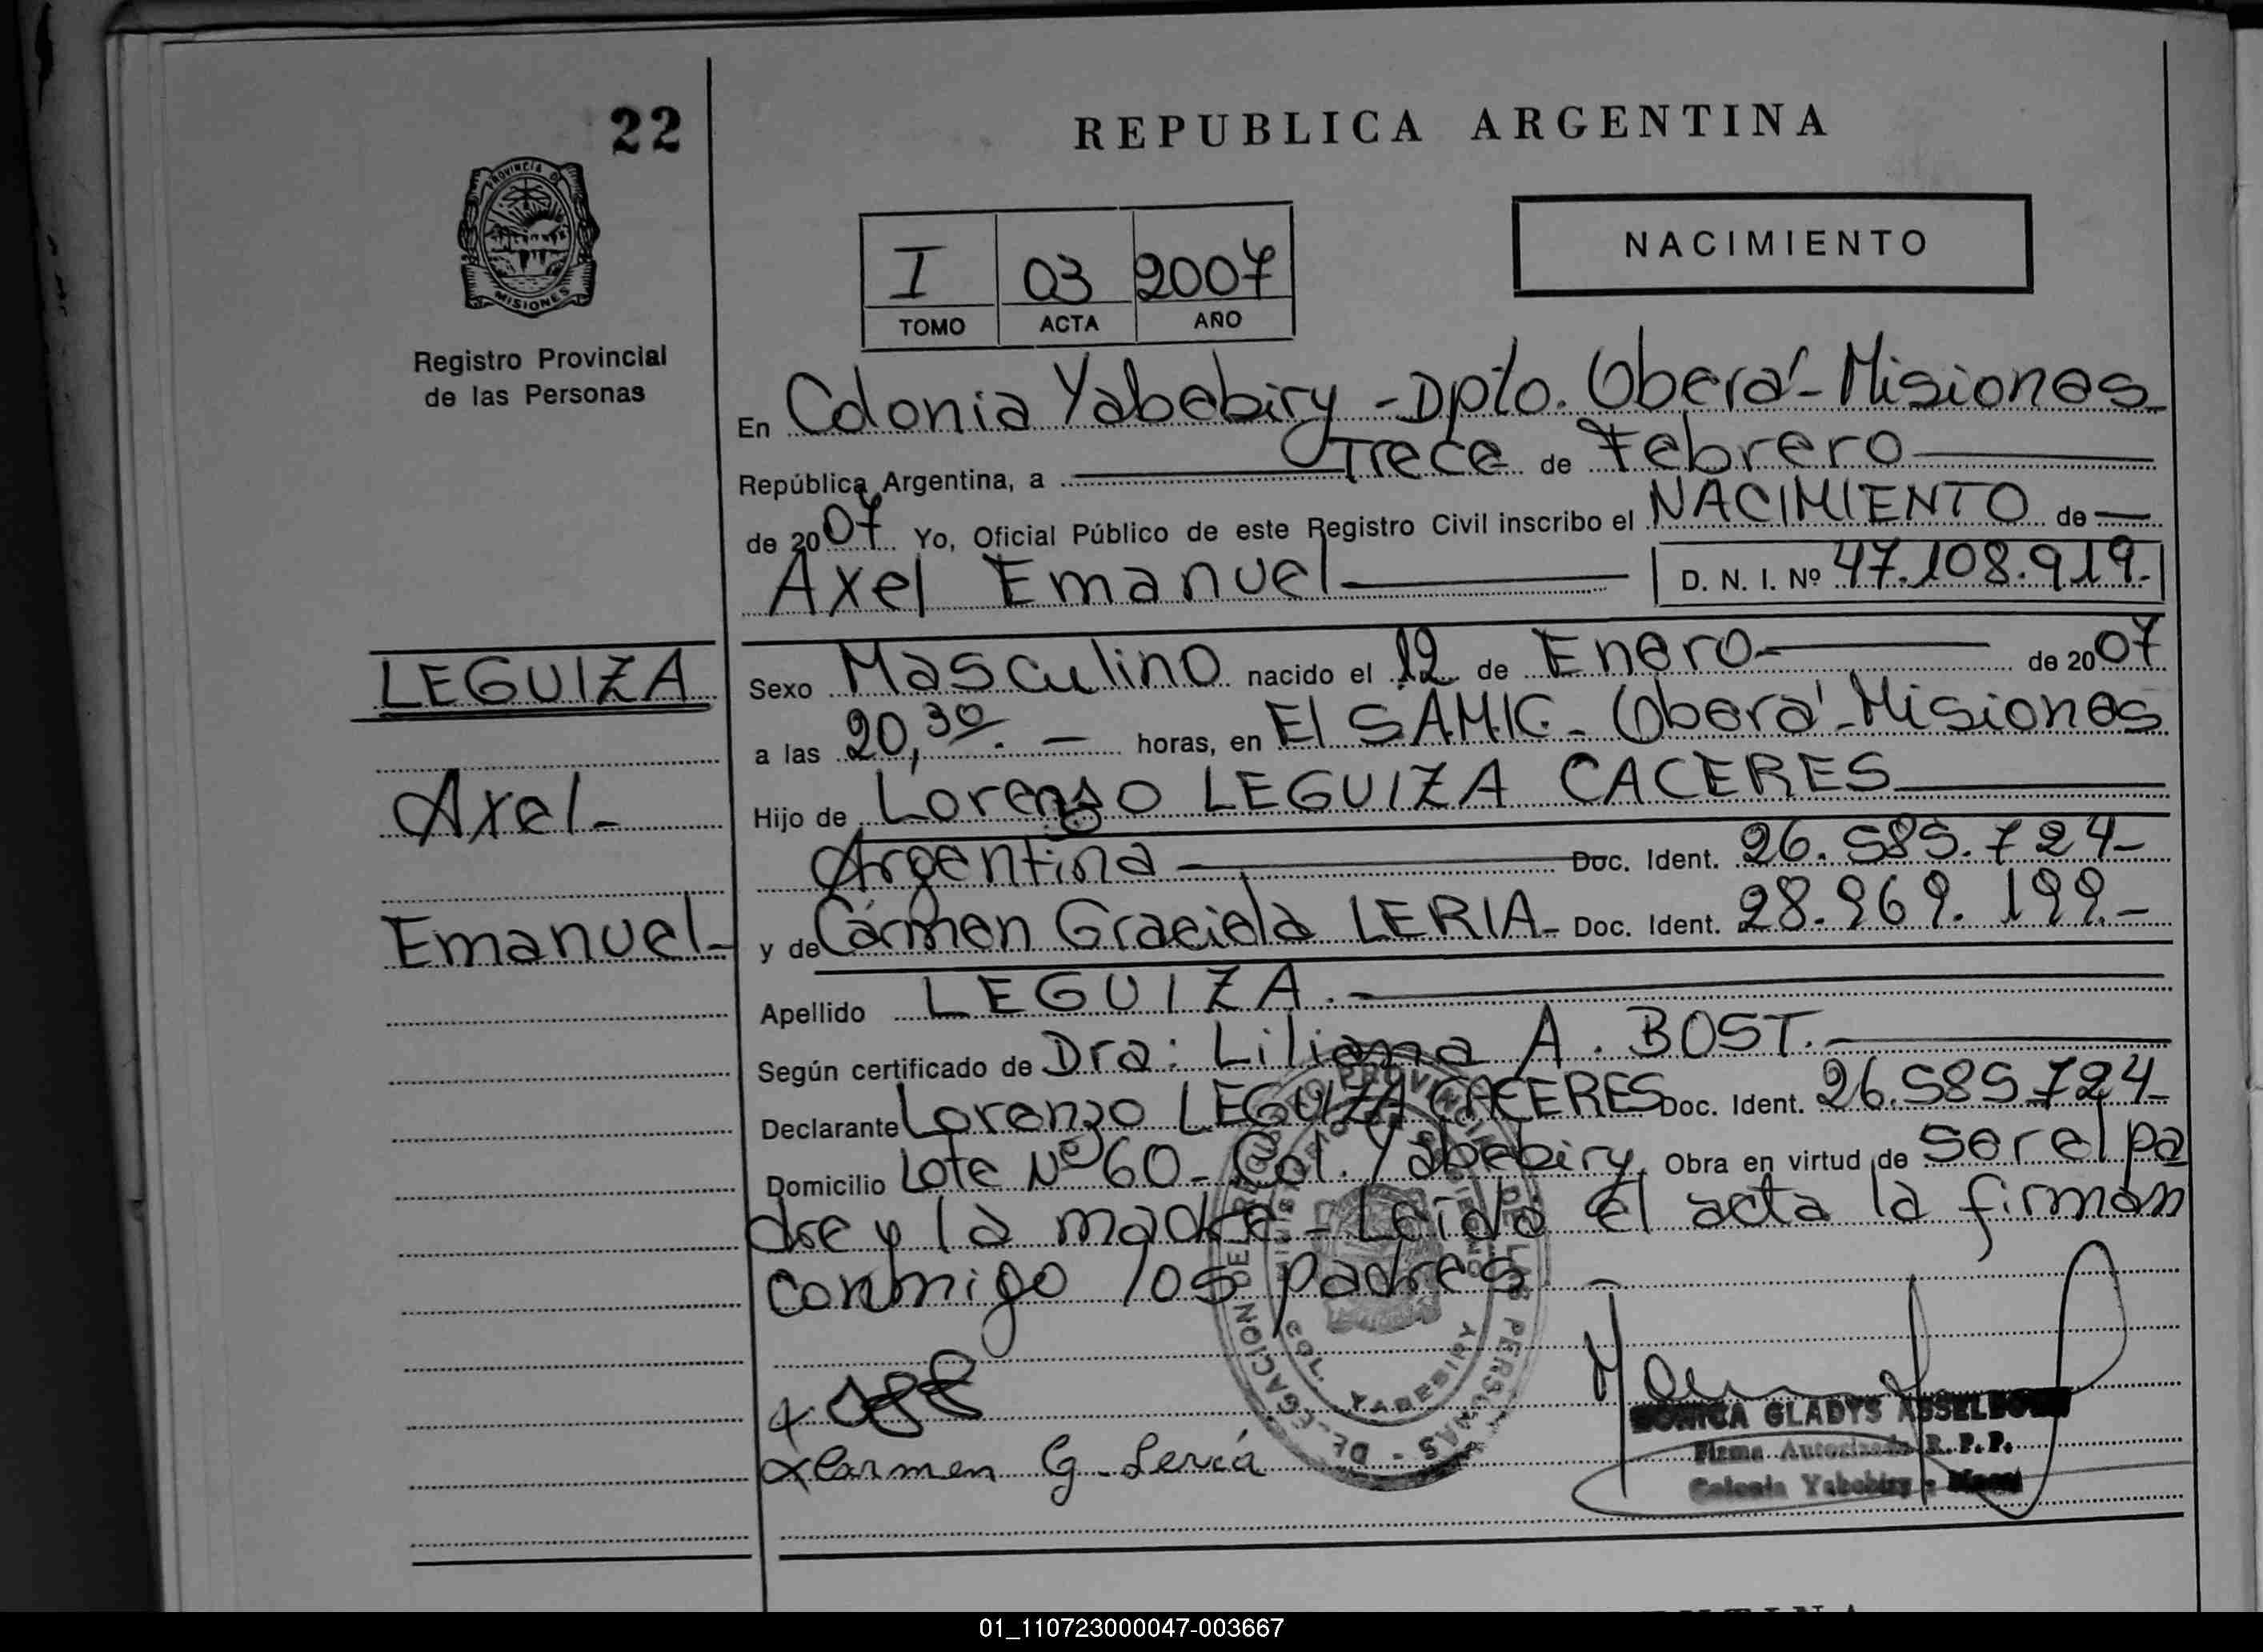 22
REPUBLICA ARGENTINA
PROVINCIA D
MISIONES
Registro Provincial
de las Personas
I 03 2007
TOMO ACTA AÑO
NACIMIENTO
En Colonia Yabebiry - Dpto. Oberá - Misiones
República Argentina, a Trece de Febrero
de 2007 Yo, Oficial Público de este Registro Civil inscribo el NACIMIENTO de
Axel Emanuel D. N. I. Nº 47.108.919.
LEGUIZA
Axel-
Emanuel-
Sexo Masculino nacido el 12 de Enero de 2007
a las 20,30. horas, en El SAMIC - Oberá - Misiones
Hijo de Lorenzo LEGUIZA CACERES
Argentina Doc. Ident. 26.585.724-
y de Carmen Graciela LERIA- Doc. Ident. 28.969.199.-
Apellido LEGUIZA.
Según certificado de Dra: Liliana A. BOST.
Declarante Lorenzo LEGUIZA CACERES Doc. Ident. 26.585.724-
Domicilio Lote Nº 60 - Col. Yabebiry. Obra en virtud de ser el pa
dre y la madre - Leída el acta la firman
conmigo los padres. -
COL. YABEBIRY
Carmen G. Leria
MONICA GLADYS ASSELBORN
Firma Autorizada R. P. P.
Colonia Yabebiry - Mnes
01_110723000047-003667